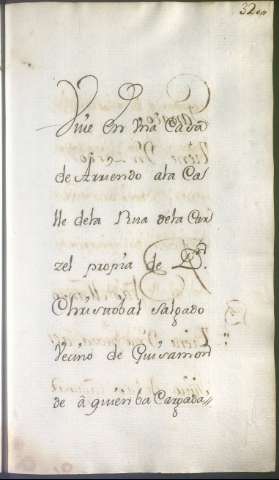 32
Viue En Vna Cassa
de Arriendo ala Cas
lle dela Rua dela Car
zel propia de Dn.
Christobal Salgado
Vecino de Guisamon
de â quien ba Cargada